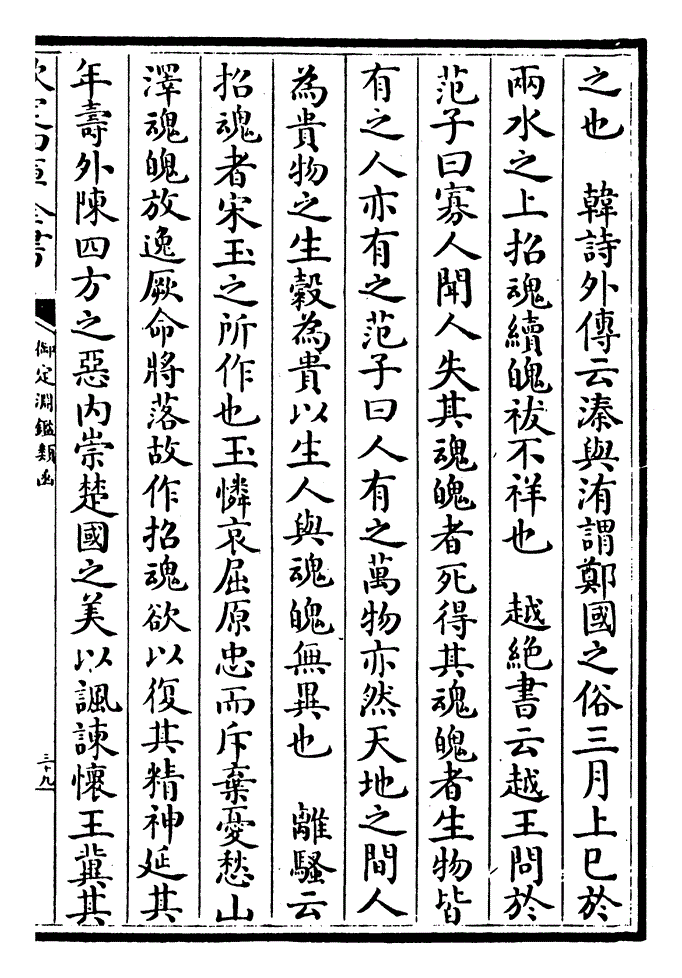 之也　韓詩外傳云溱與洧謂鄭國之俗三月上巳於
兩水之上招魂續魄祓不祥也　越絶書云越王問於
范子曰寡人聞人失其魂魄者死得其魂魄者生物皆
有之人亦有之范子曰人有之萬物亦然天地之間人
為貴物之生穀為貴以生人與魂魄無異也　離騷云
招魂者宋玉之所作也玉憐哀屈原忠而斥棄憂愁山
澤魂魄放逸厥命將落故作招魂欲以復其精神延其
年壽外陳四方之惡内崇楚國之美以諷諫懷王冀其
欽定四庫全書
御定淵鑑類函
三十九